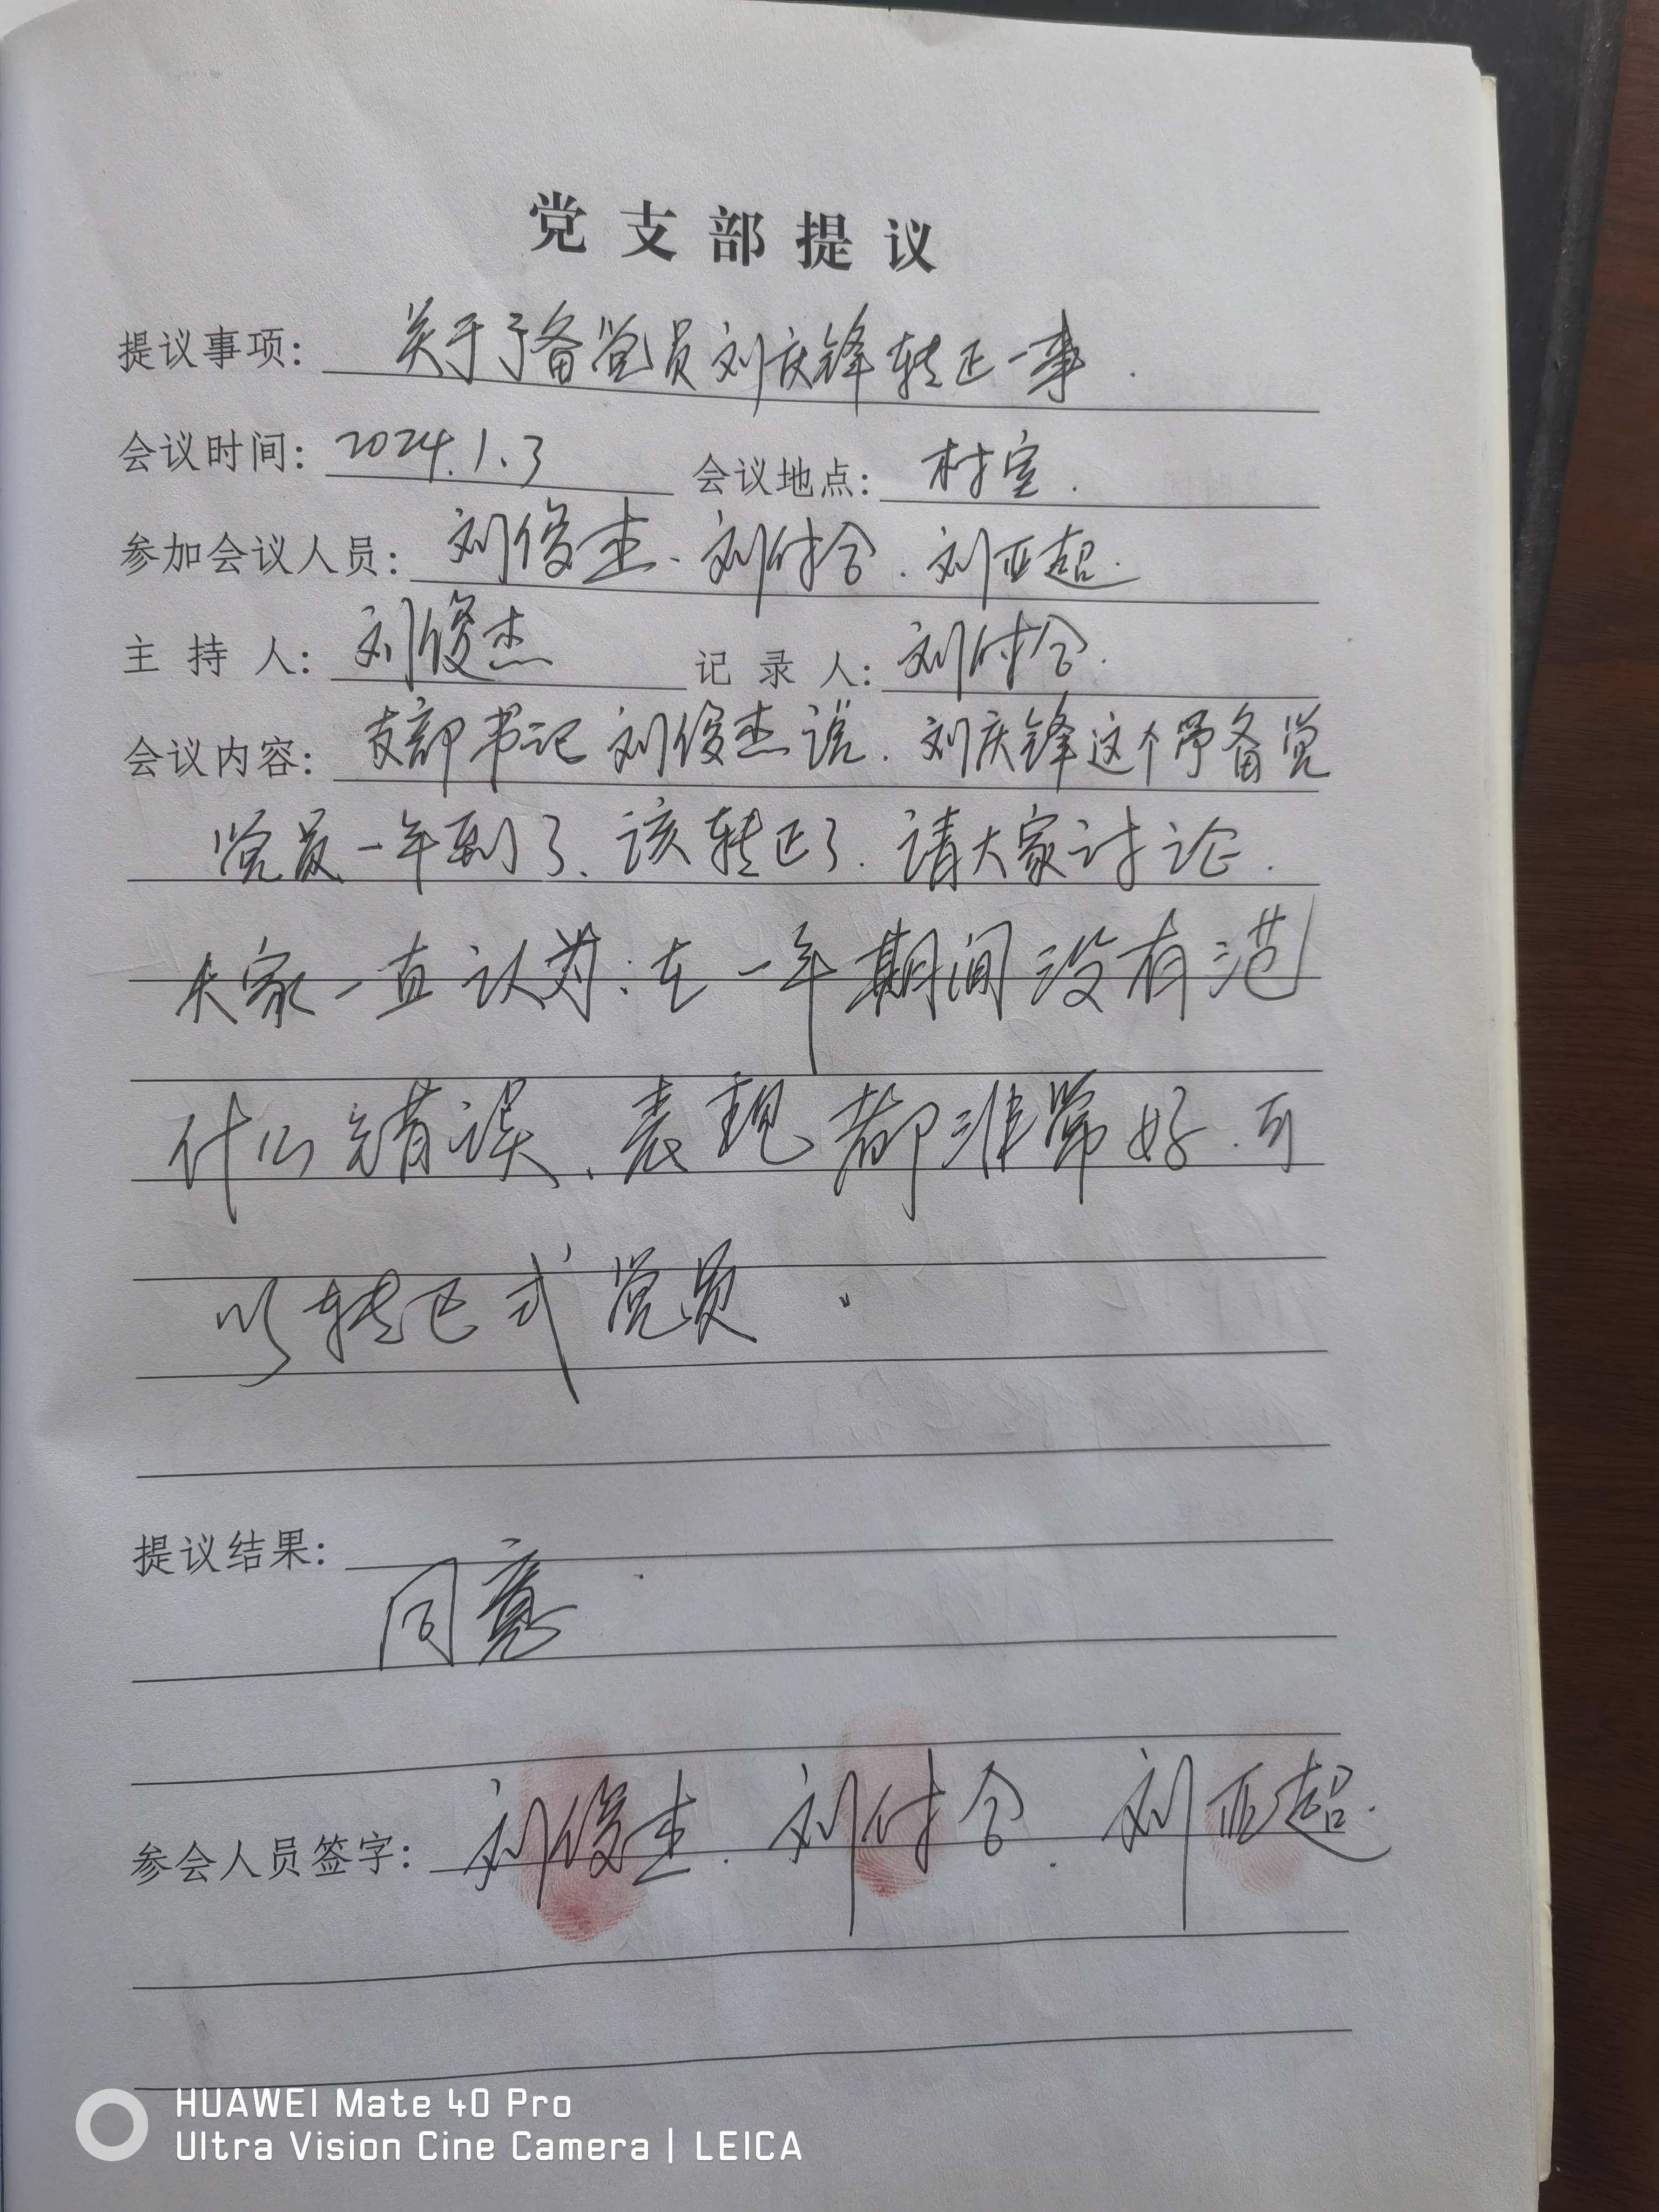 党支部提议
提议事项： 关于予备党员刘庆锋转正一事.
会议时间： 2024.1.3 会议地点： 村室.
参加会议人员： 刘俊杰、刘付合.刘亚超.
主持人： 刘俊杰 记录人： 刘付合.
会议内容： 支部书记刘俊杰说.刘庆锋这个予备党
党员一年到了、该转正了.请大家讨论.
大家一直认为:在一年期间没有范
什么错误、表现都非常好.可
以转正式党员.
提议结果：
同意.
参会人员签字： 刘俊杰.刘付合.刘亚超.
HUAWEI Mate 40 Pro
Ultra Vision Cine Camera | LEICA